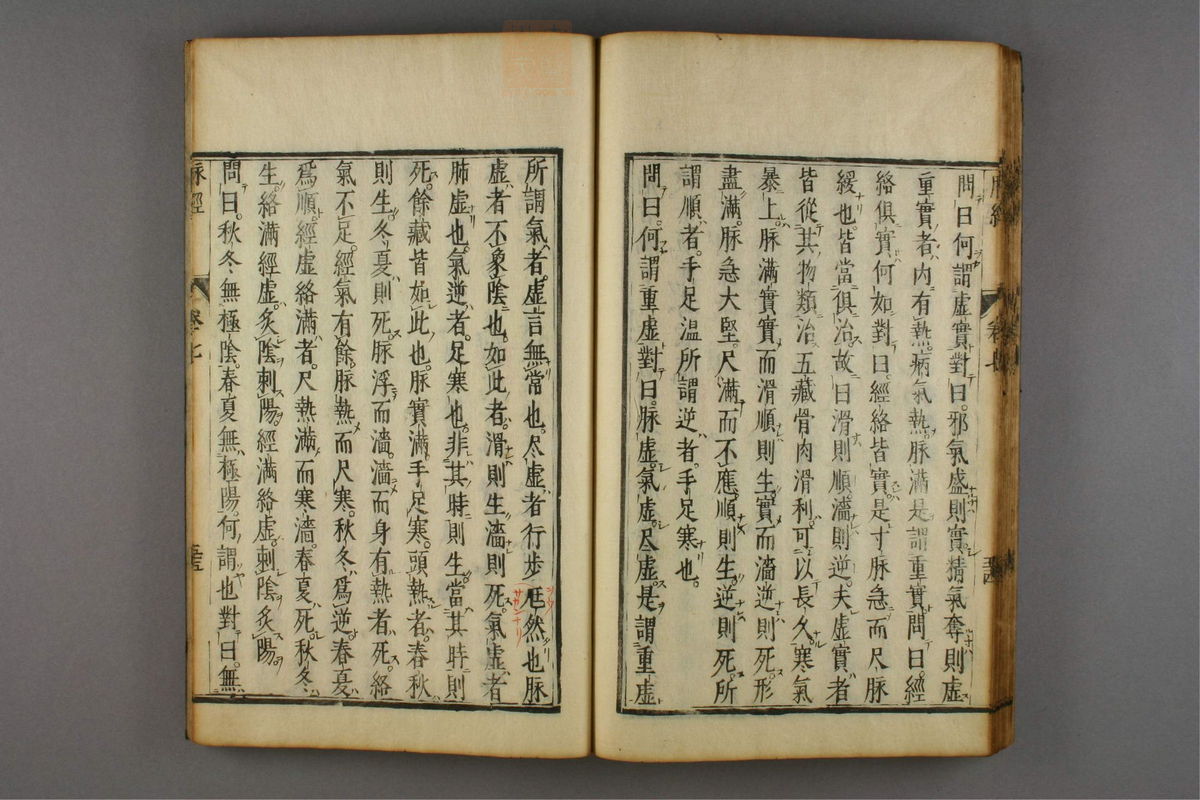 問曰何謂虛實對曰邪氣盛則實精氣奪則虛
重實者內有熱病氣熱脉滿是謂重實問曰經
絡俱實何如對曰經絡皆實是寸脉急而尺脉
緩也皆當俱治故曰滑則順濇則逆夫虛實者
皆從其物類治五藏骨肉滑利可以長久寒氣
暴上脉滿實實而滑順則生實而濇逆則死形
盡滿脉急大堅尺滿而不應順則生逆則死所
謂順者手足溫所謂逆者手足寒也
問曰何謂重虛對曰脉虛氣虛尺虛是謂重虛
所謂氣者虛言無常也尺虛者行步尫然也脉
虛者不象陰也如此者滑則生濇則死氣虛者
肺虛也氣逆者足寒也非其時則生當其時則
死餘藏皆如此也脉實滿手足寒頭熱者春秋
則生冬夏則死脉浮而濇濇而身有熱者死絡
氣不足經氣有餘脉熱而尺寒秋冬爲逆春夏
爲順經虛絡滿者尺熱滿而寒濇春夏死秋冬
生絡滿經虛灸陰刺陽經滿絡虛刺陰灸陽
問曰秋冬無極陰春夏無極陽何謂也對曰無
脉經 卷七